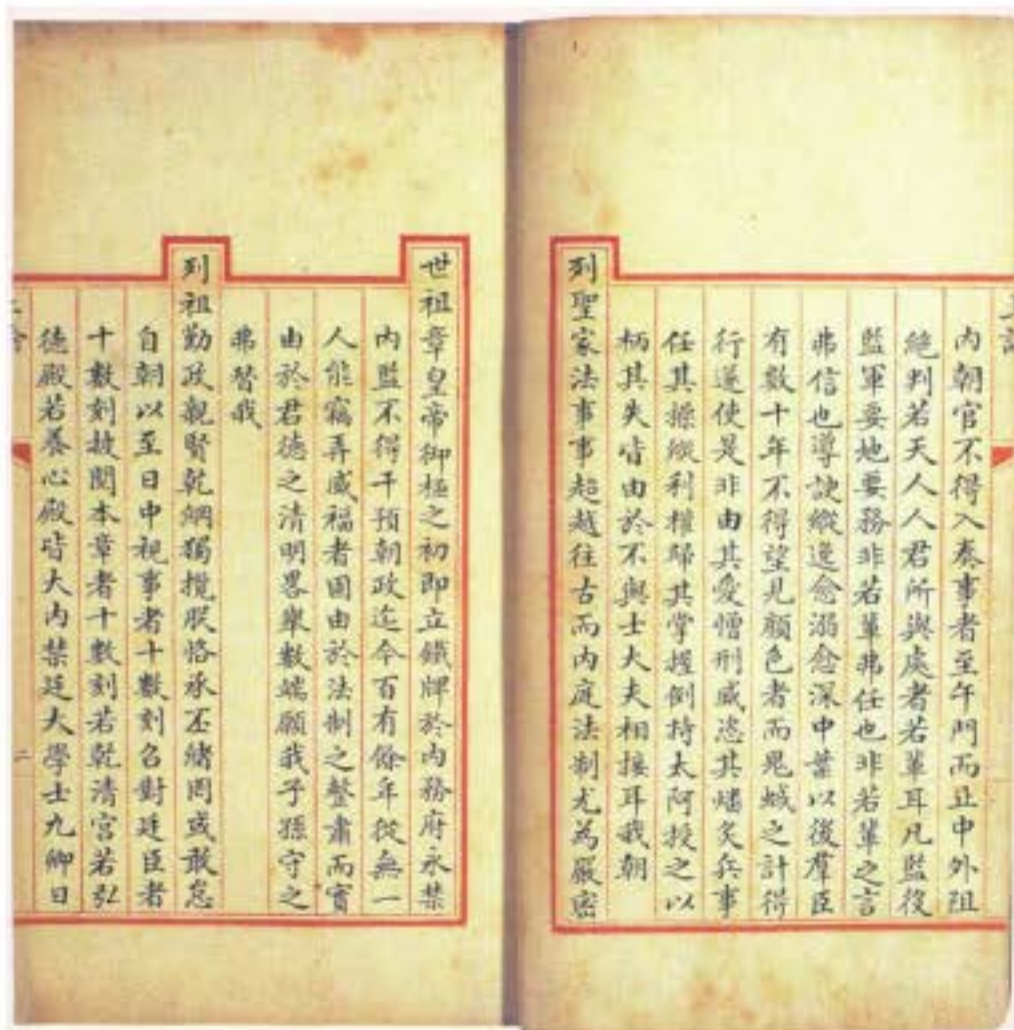 內朝官不得入奏事者至午門而止中外阻
絶判若天人人君所與處者若輩耳凡監役
監軍要地要務非若輩弗任也非若輩之言
弗信也導諛縱逸愈溺愈深中葉以後羣臣
有數十年不得望見顏色者而鬼蜮之計得
行遂使是非由其愛憎刑威恣其燔炙兵事
任其操縱利權歸其掌握倒持太阿授之以
柄其失皆由於不與士大夫相接耳我朝
列聖家法事事超越往古而內庭法制尤為嚴密
世祖章皇帝御極之初即立鐵牌於內務府永禁
內監不得干預朝政迄今百有餘年從無一
人能竊弄威福者固由於法制之整肅而實
由於君德之清明畧舉數端願我子孫守之
弗替我
列祖勤政親賢乾綱獨攬朕恪承丕緒罔或敢怠
自朝以至日中視事者十數刻召對廷臣者
十數刻披閱本章者十數刻若乾清宮若弘
德殿若養心殿皆大內禁廷大學士九卿日
二